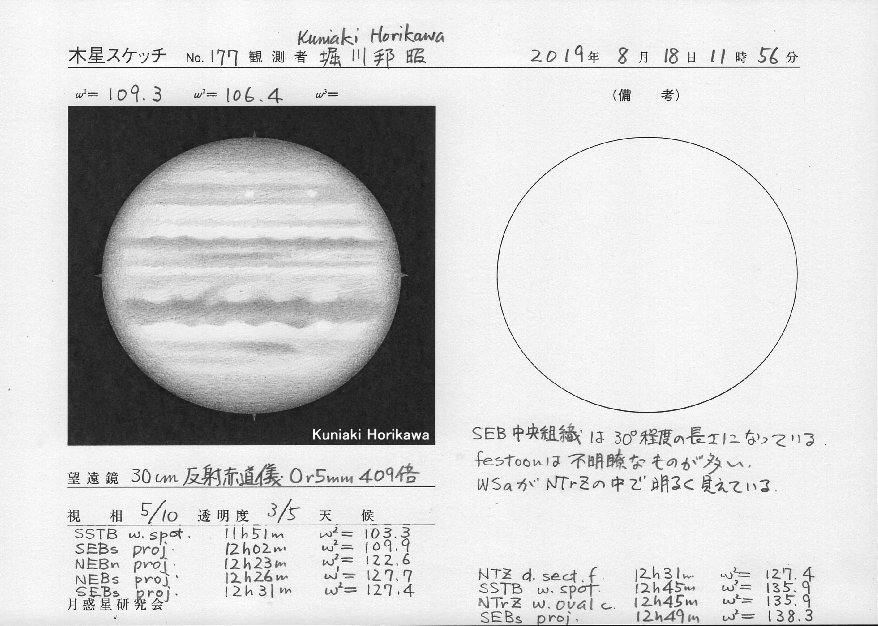 Kuniaki Horikawa
木星スケッチ No. 177 観測者 堀川邦昭 2019年 8月 18日 11時 56分
ω¹= 109.3 ω²= 106.4 ω³=
(備 考)
Kuniaki Horikawa
SEB中央組織は30°程度の長さになっている.
festoonは不明瞭なものが多い.
WSaがNTrZの中で明るく見えている.
望遠鏡 30cm 反射赤道儀 Or5mm 409倍
視相 5/10 透明度 3/5 天候
SSTB w.spot. 11h51m ω²= 103.3
SEBs proj. 12h02m ω²= 109.9
NEBn proj. 12h23m ω²= 122.6
NEBs proj. 12h26m ω¹= 127.7
SEBs proj. 12h31m ω²= 127.4
月惑星研究会
NTZ d.sect.f. 12h31m ω²= 127.4
SSTB w.spot. 12h45m ω²= 135.9
NTrZ w.oval c. 12h45m ω²= 135.9
SEBs proj. 12h49m ω²= 138.3